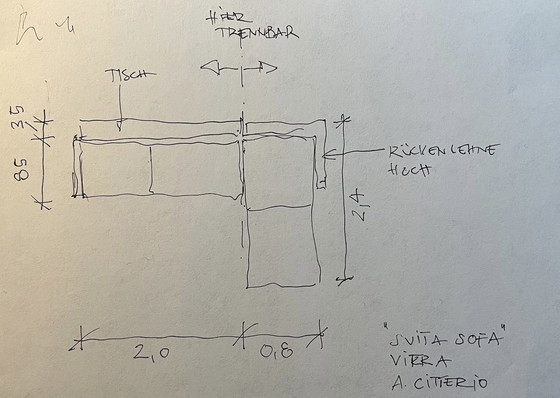 HIER
TRENNBAR
TISCH
35
85
RÜCKENLEHNE
HOCH
2,4
2,0
0,8
"SUITA SOFA"
VITRA
A. CITTERIO